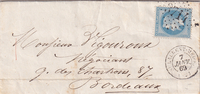 Monsieur Vigouroux
Négociant
q. des Chartrons, 87
Bordeaux